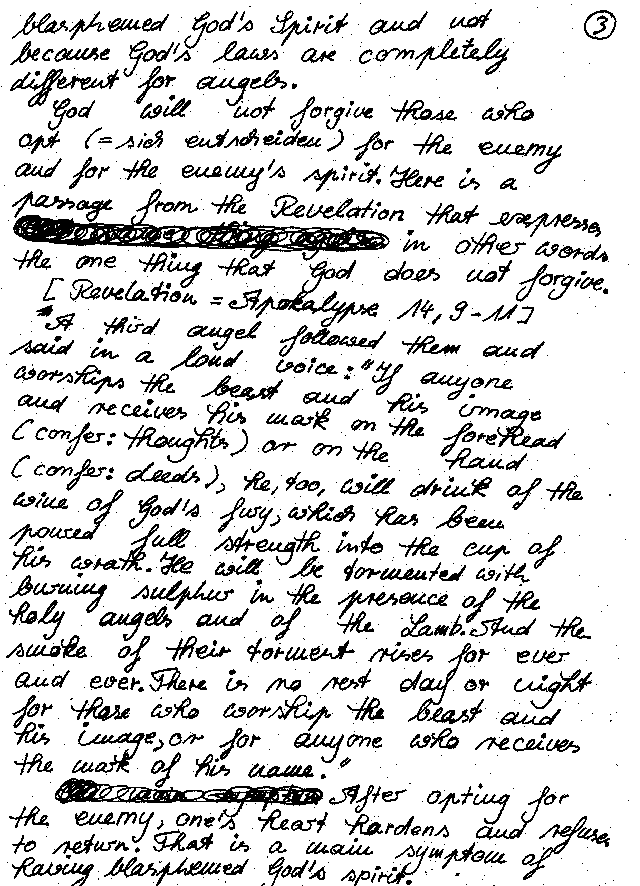 blasphemed God's Spirit and not
3
because God's laws are completely
different for angels.
God will not forgive those who
opt (= sich entscheiden) for the enemy
and for the enemy's spirit. Here is a
passage from the Revelation that expresses
in other words
the one thing that God does not forgive.
[Revelation = Apokalypse 14, 9-11]
"A third angel followed them and
said in a loud voice: "If anyone
worships the beast and his image
and receives his mark on the forehead
(confer: thoughts) or on the hand
(confer: deeds), he, too, will drink of the
wine of God's fury, which has been
poured full strength into the cup of
his wrath. He will be tormented with
burning sulphur in the presence of the
holy angels and of the Lamb. And the
smoke of their torment rises for ever
and ever. There is no rest day or night
for those who worship the beast and
his image, or for anyone who receives
the mark of his name."
After opting for
the enemy, one's heart hardens and refuses
to return. That is a main symptom of
having blasphemed God's spirit.